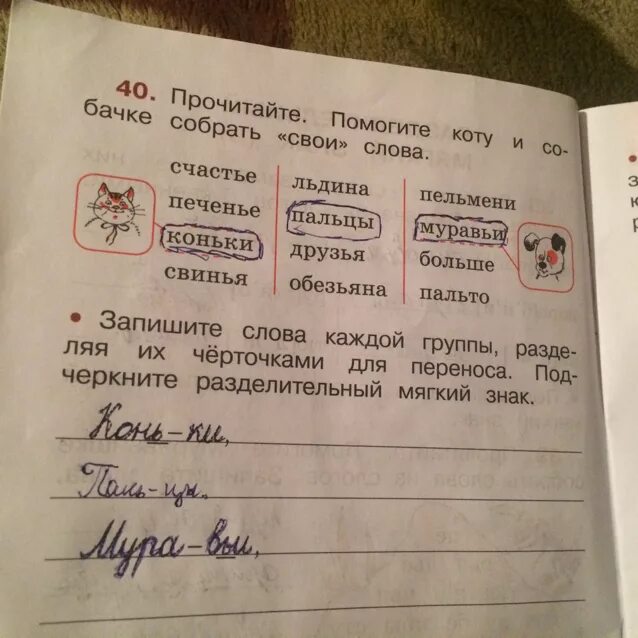 40. Прочитайте. Помогите коту и со-
бачке собрать «свои» слова.
счастье льдина пельмени
печенье пальцы муравьи
коньки друзья больше
свинья обезьяна пальто
• Запишите слова каждой группы, разде-
ляя их чёрточками для переноса. Под-
черкните разделительный мягкий знак.
Конь-ки,
Паль-цы,
Мура-вьи,